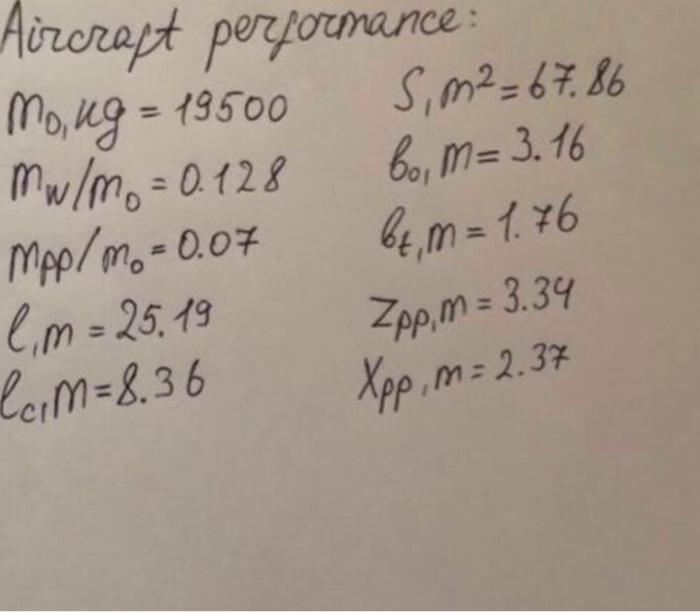 Aircraft performance:
m₀, kg = 19500
m_w/m₀ = 0.128
m_pp/m₀ = 0.07
l, m = 25.19
l_c, m = 8.36
S, m² = 67.86
b₀, m = 3.16
b_t, m = 1.76
Z_pp, m = 3.34
X_pp, m = 2.37